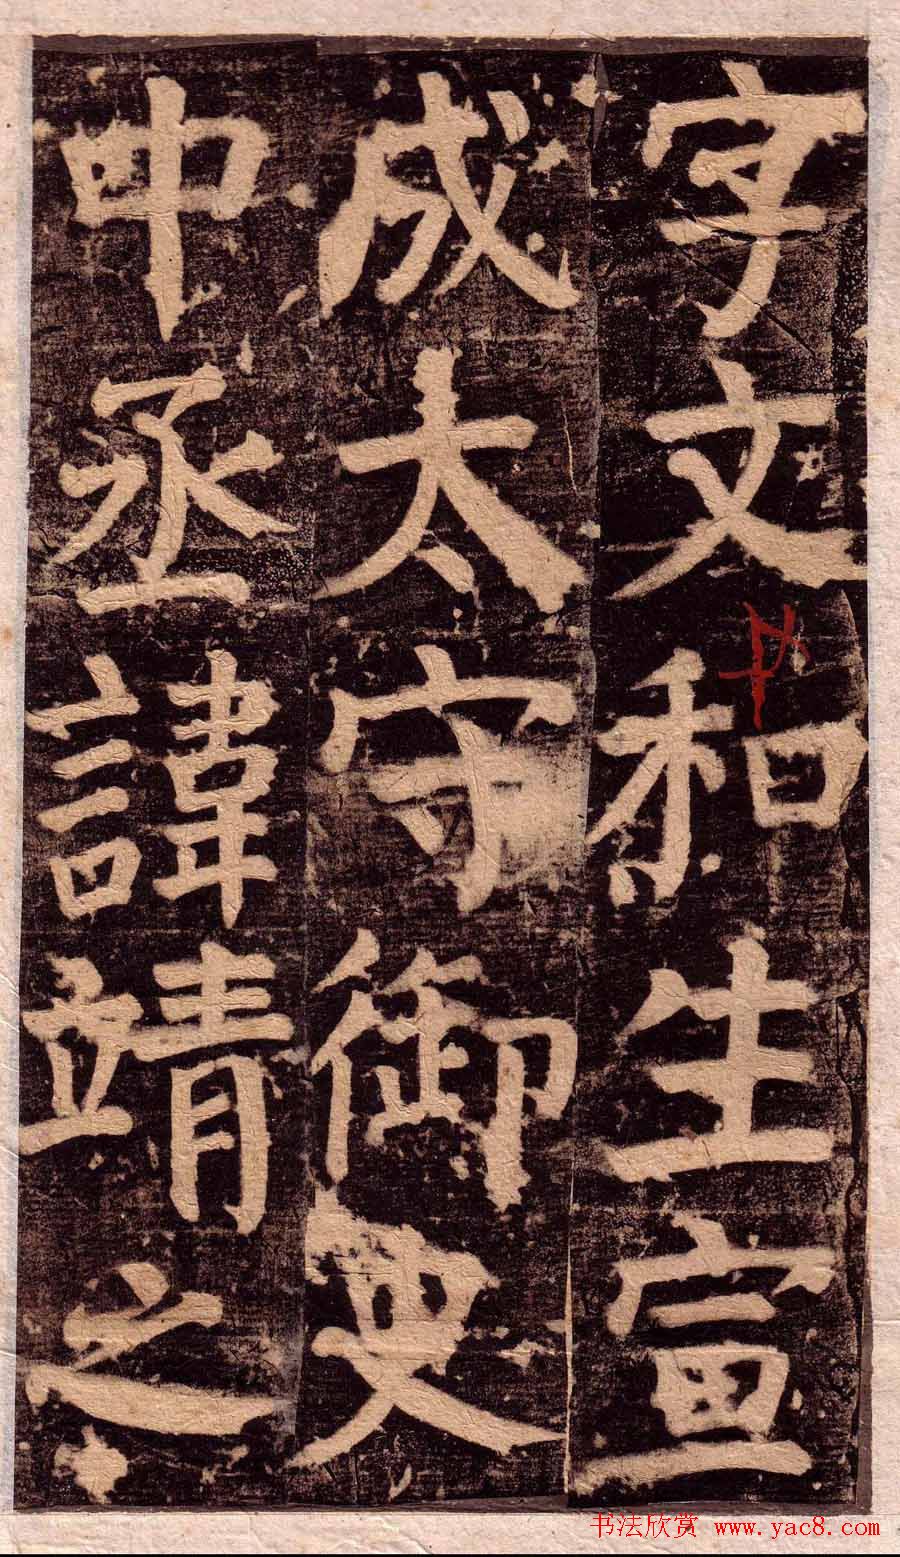 字文和生宣
成太守御史
中丞諱靖之
书法欣赏 www.yac8.com